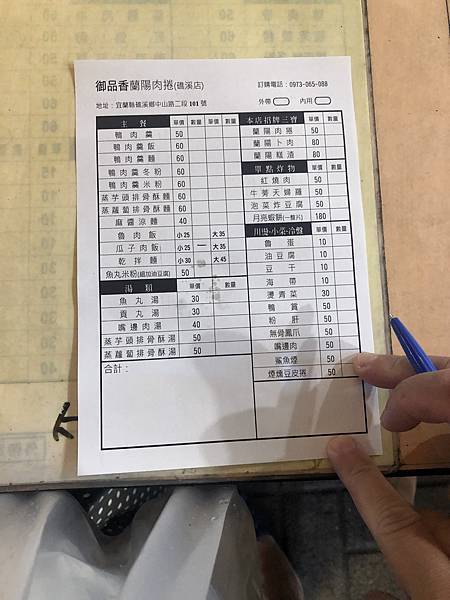 御品香蘭陽肉捲(礁溪店)
訂購電話：0973-065-088
地址：宜蘭縣礁溪鄉中山路二段 101 號
外帶
內用
主餐 單價 數量 單價 數量
鴨肉羹 50
鴨肉羹飯 60
鴨肉羹麵 60
鴨肉羹冬粉 60
鴨肉羹米粉 60
蒸芋頭排骨酥麵 60
蒸蘿蔔排骨酥麵 60
麻醬涼麵 40
魯肉飯 小25 大35
瓜子肉飯 小25 大35
乾拌麵 小30 大45
魚丸米粉(細加油豆腐) 50
湯類 單價 數量
魚丸湯 30
貢丸湯 30
嘴邊肉湯 40
蒸芋頭排骨酥湯 50
蒸蘿蔔排骨酥湯 50
合計：
本店招牌三寶 單價 數量
蘭陽肉捲 50
蘭陽卜肉 80
蘭陽糕渣 80
單點炸物 單價 數量
紅燒肉 50
牛蒡天婦羅 50
泡菜炸豆腐 50
月亮蝦餅(一整片) 180
川燙-小菜-冷盤 單價 數量
魯蛋 10
油豆腐 10
豆干 10
海帶 10
燙青菜 30
鴨賞 50
粉肝 50
無骨鳳爪 50
嘴邊肉 50
鯊魚煙 50
煙燻豆皮捲 50